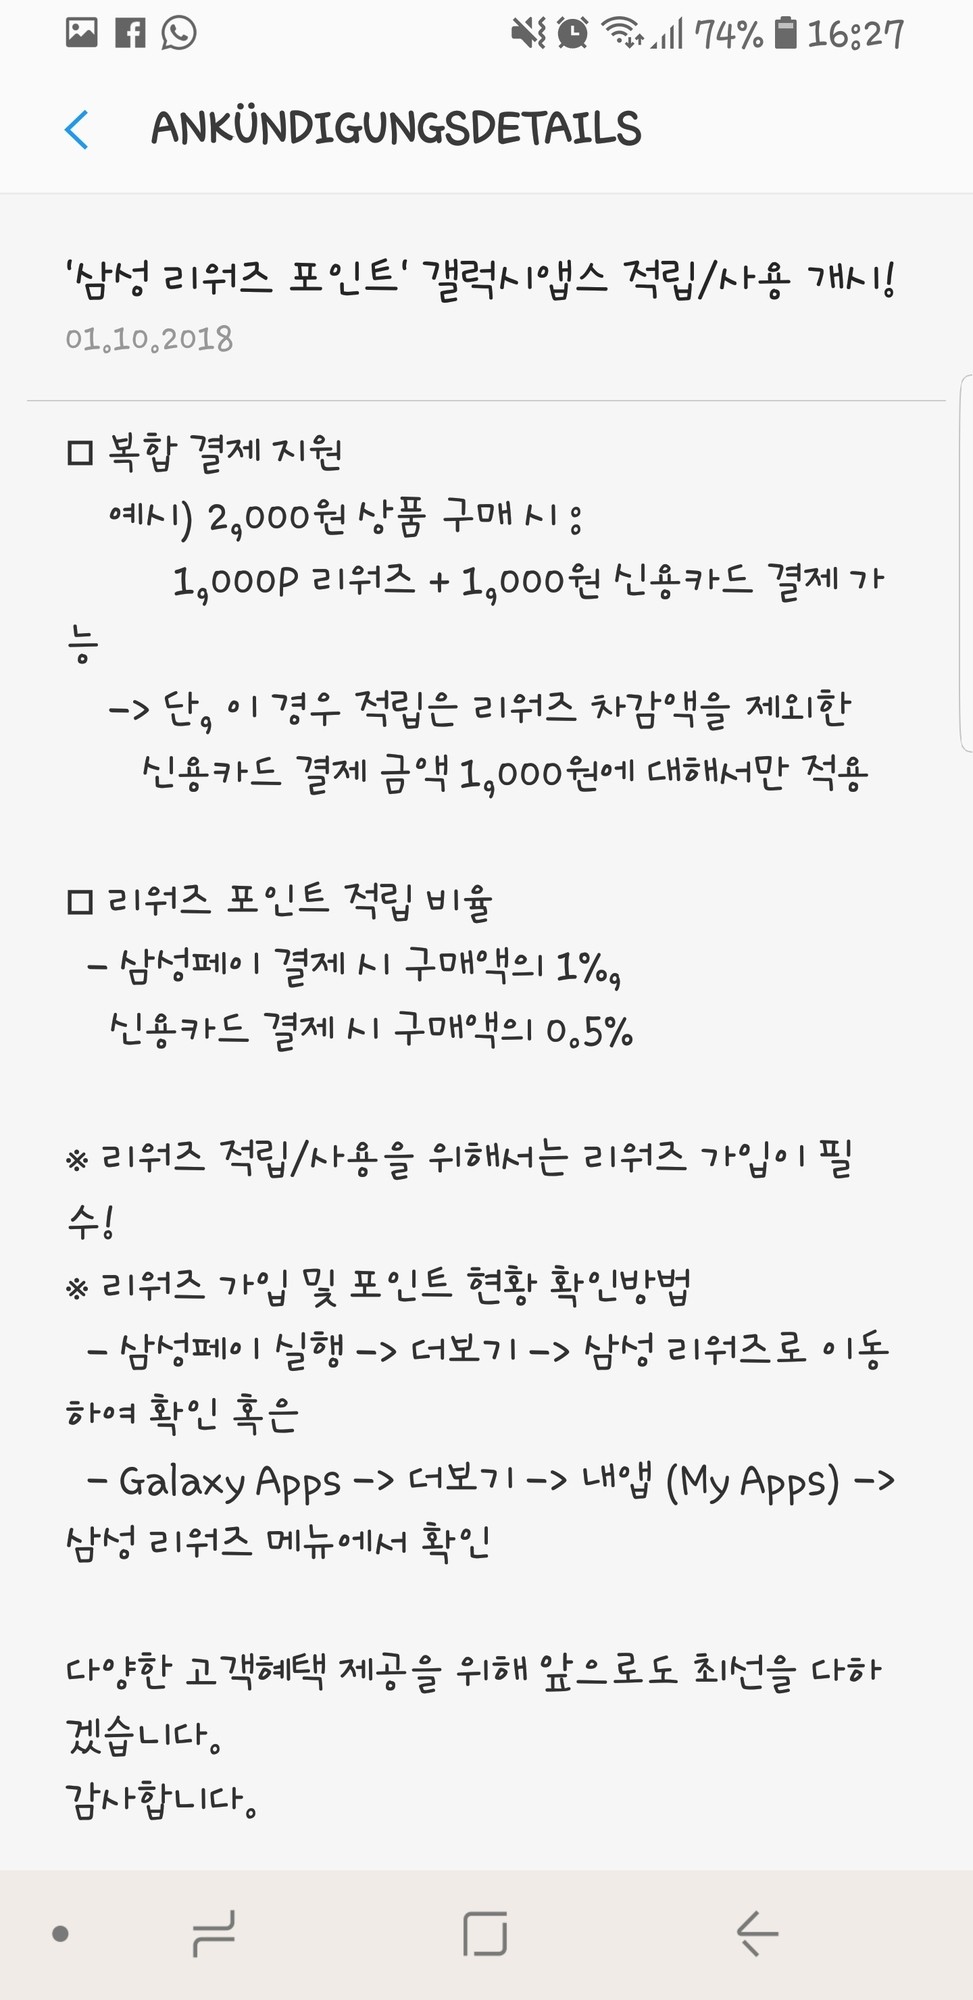 74% 16:27
ANKÜNDIGUNGSDETAILS
'삼성 리워즈 포인트' 갤럭시앱스 적립/사용 개시!
01.10.2018
□ 복합 결제 지원
예시) 2,000원 상품 구매 시 :
1,000P 리워즈 + 1,000원 신용카드 결제 가
능
-> 단, 이 경우 적립은 리워즈 차감액을 제외한
신용카드 결제 금액 1,000원에 대해서만 적용
□ 리워즈 포인트 적립 비율
- 삼성페이 결제 시 구매액의 1%,
신용카드 결제 시 구매액의 0.5%
※ 리워즈 적립/사용을 위해서는 리워즈 가입이 필
수!
※ 리워즈 가입 및 포인트 현황 확인방법
- 삼성페이 실행 -> 더보기 -> 삼성 리워즈로 이동
하여 확인 혹은
- Galaxy Apps -> 더보기 -> 내앱 (My Apps) ->
삼성 리워즈 메뉴에서 확인
다양한 고객혜택 제공을 위해 앞으로도 최선을 다하
겠습니다.
감사합니다.